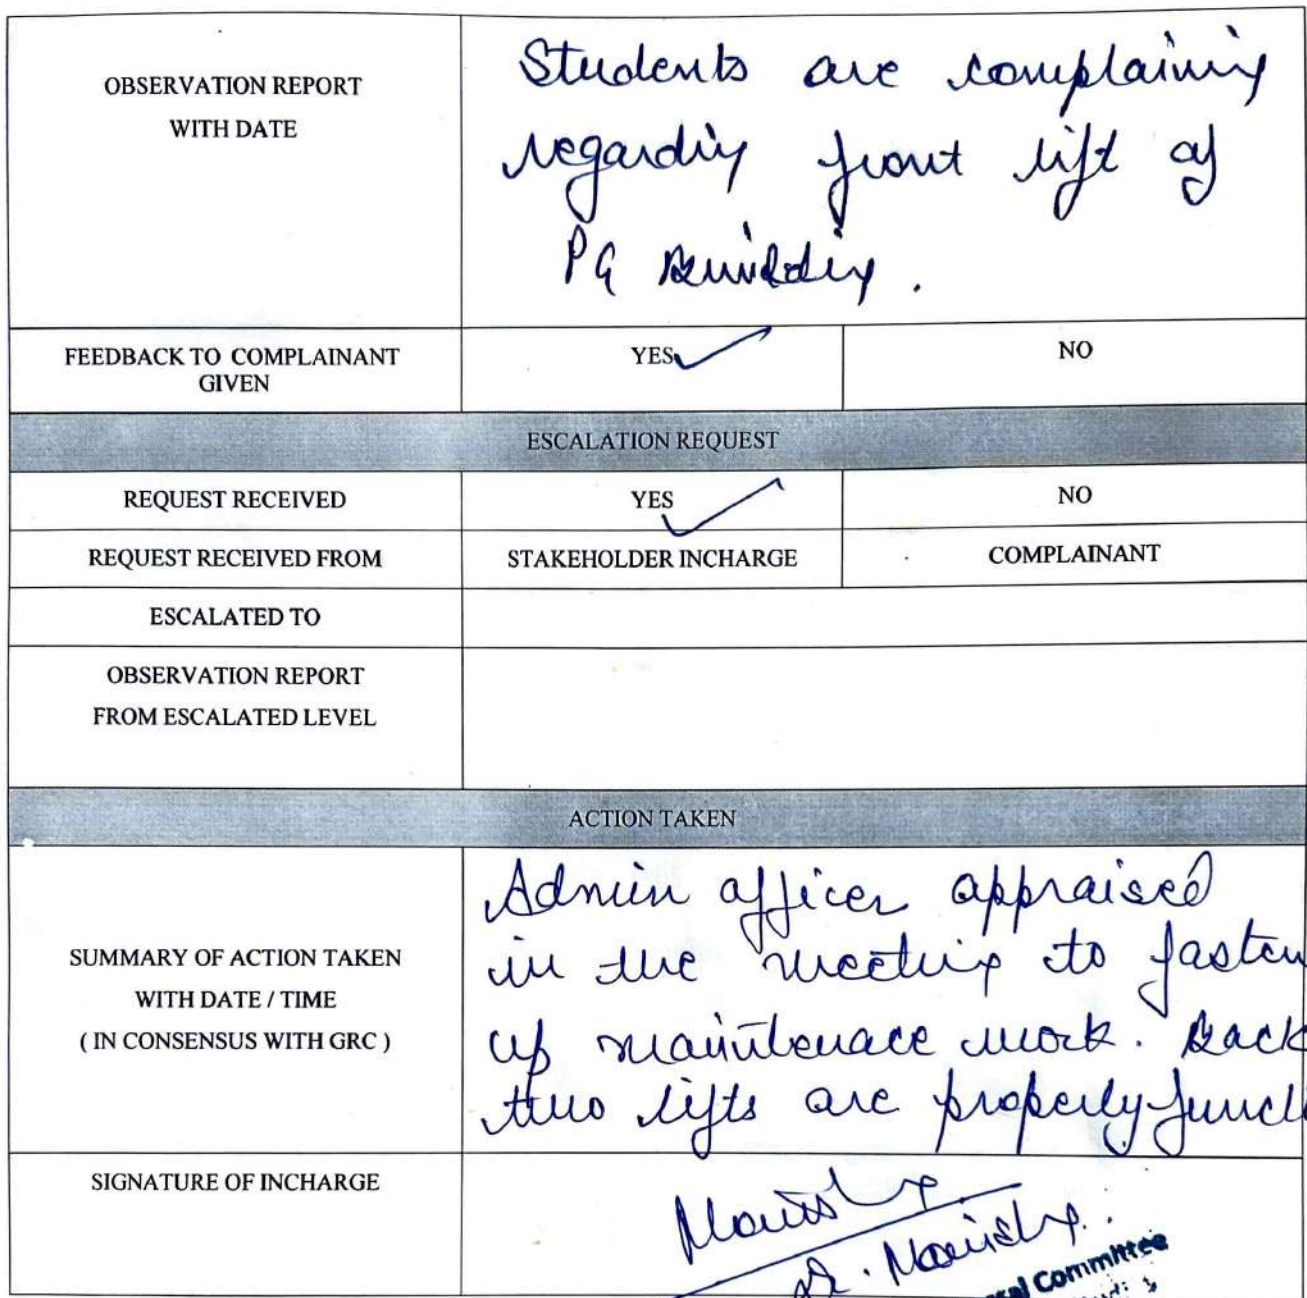 OBSERVATION REPORT
WITH DATE
Students are complaining
regarding front lift of
PG Building.
FEEDBACK TO COMPLAINANT
GIVEN
YES NO
ESCALATION REQUEST
REQUEST RECEIVED YES NO
REQUEST RECEIVED FROM STAKEHOLDER INCHARGE COMPLAINANT
ESCALATED TO
OBSERVATION REPORT
FROM ESCALATED LEVEL
ACTION TAKEN
SUMMARY OF ACTION TAKEN
WITH DATE / TIME
( IN CONSENSUS WITH GRC )
Admin officer appraised
in the meeting to fasten
up maintenace work. Back
two lifts are properly
SIGNATURE OF INCHARGE
Dr.
Committee